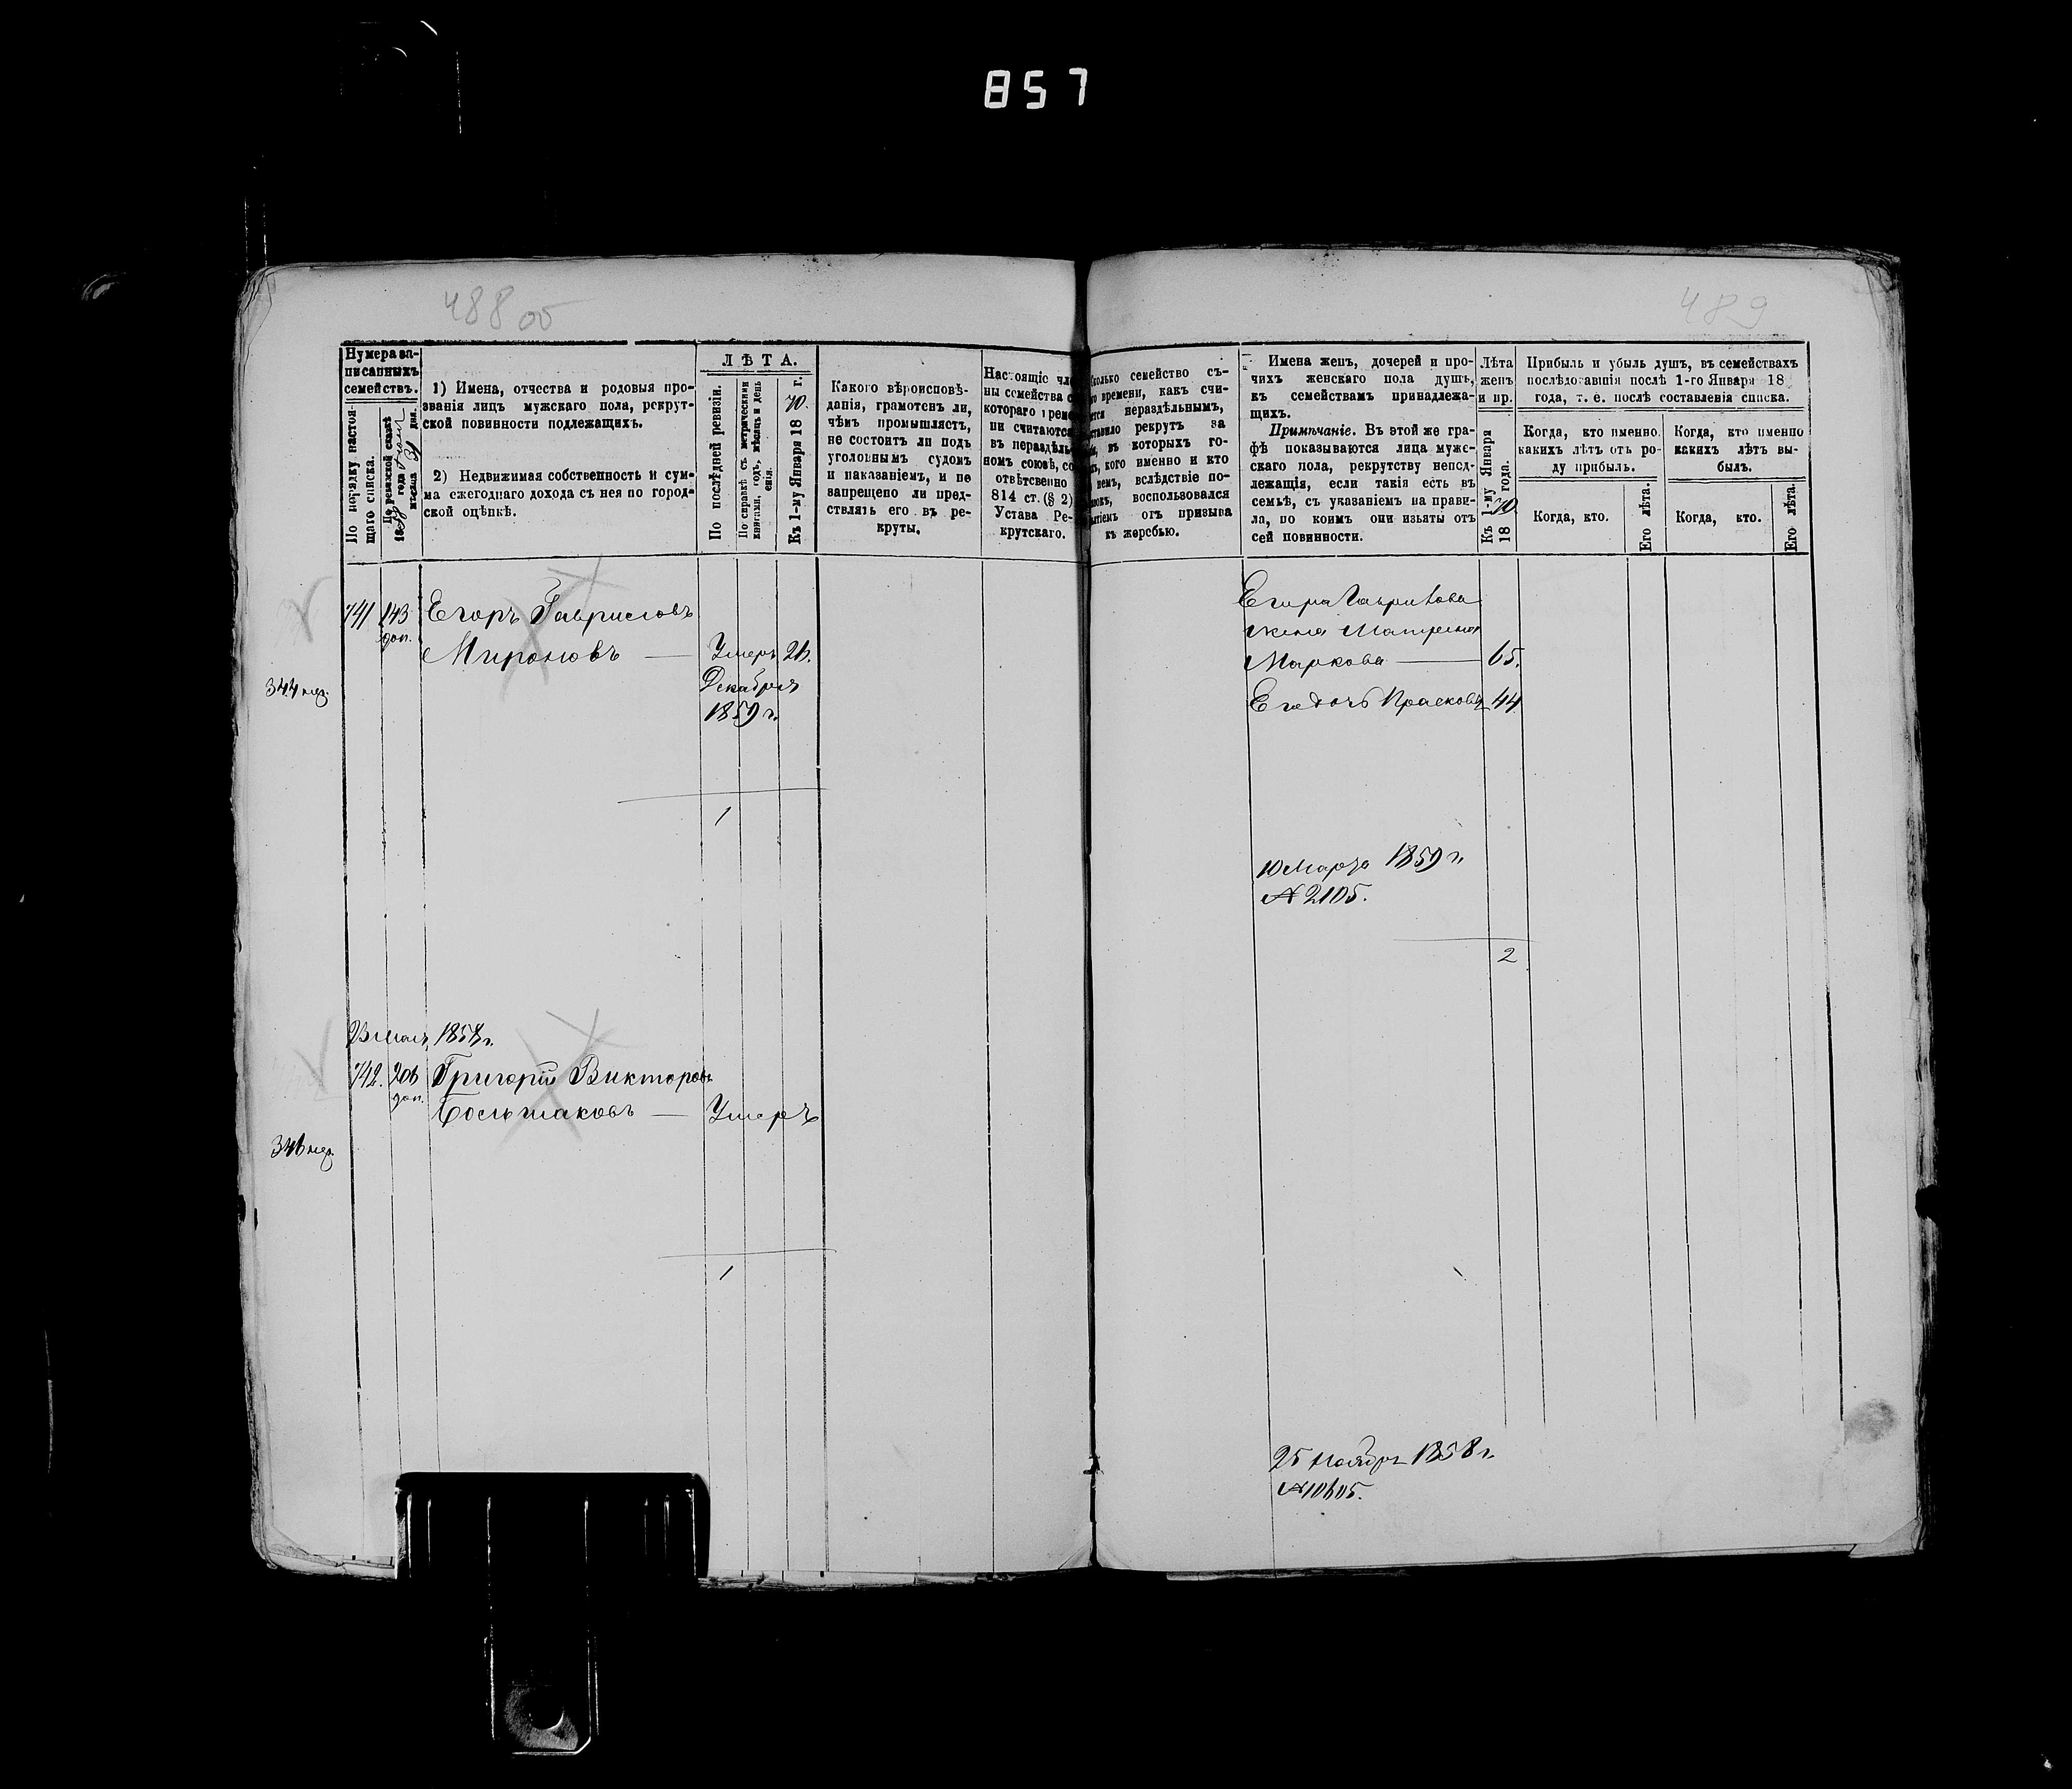 857
488 об
489
Нумера за-
писанныхъ
семействъ.
По порядку настоя-
щаго списка.
По ревизской сказкѣ
1858 года
мѣсяца дня.
1) Имена, отчества и родовыя про-
званія лицъ мужскаго пола, рекрут-
ской повинности подлежащихъ.
2) Недвижимая собственность и сум-
ма ежегоднаго дохода съ нея по город-
ской оцѣнкѣ.
ЛѢТА.
По послѣдней ревизіи.
По справкѣ съ метрическими
книгами, годъ, мѣсяцъ и день
Къ 1-му Января 1870. г.
Какого вѣроисповѣ-
данія, грамотенъ ли,
чѣмъ промышляетъ,
не состоитъ ли подъ
уголовнымъ судомъ
и наказаніемъ, и не
запрещено ли пред-
ставлять его въ ре-
круты.
Настоящіе чле
ны семейства с
котораго време
ни считаются
въ нераздѣль
номъ союзѣ, со
отвѣтсвенно
814 ст. (§ 2)
Устава Ре-
крутскаго.
колько семейство съ-
го времени, какъ счи-
ется нераздѣльнымъ,
ставило рекрутъ за
въ которыхъ го-
кого именно и кто
немъ, вслѣдствіе по-
воспользовался
отъ призыва
къ жеребью.
Имена женъ, дочерей и про-
чихъ женскаго пола душъ,
къ семействамъ принадлежа-
щихъ.
Примѣчаніе. Въ этой же гра-
фѣ показываются лица муже-
скаго пола, рекрутству непод-
лежащія, если такія есть въ
семьѣ, съ указаніемъ на прави-
ла, по коимъ они изьяты отъ
сей повинности.
Лѣта
женъ
и пр.
Къ 1-му Января
1870 года.
Прибыль и убыль душъ, въ семействахъ
послѣдовавшія послѣ 1-го Января 18
года, т. е. послѣ составленія списка.
Когда, кто именно
какихъ лѣтъ отъ ро-
ду прибылъ.
Когда, кто именно
какихъ лѣтъ вы-
былъ.
Когда, кто.
Его лѣта.
Когда, кто.
Его лѣта.
741 143 Егоръ Гавриловъ
доп.
Мироновъ — Умеръ 26.
Декабря
1859 г.
344
1
Егора Гаврилова
жена Матрена
Маркова — 65.
Его дочь Прасковья 44
10 Марта 1859 г.
№ 2105.
2
23 Мая, 1858 г.
742. 206 Григорій Викторовъ
доп.
Большаковъ — Умеръ
346
1
25 Ноября 1858 г.
№ 10605.